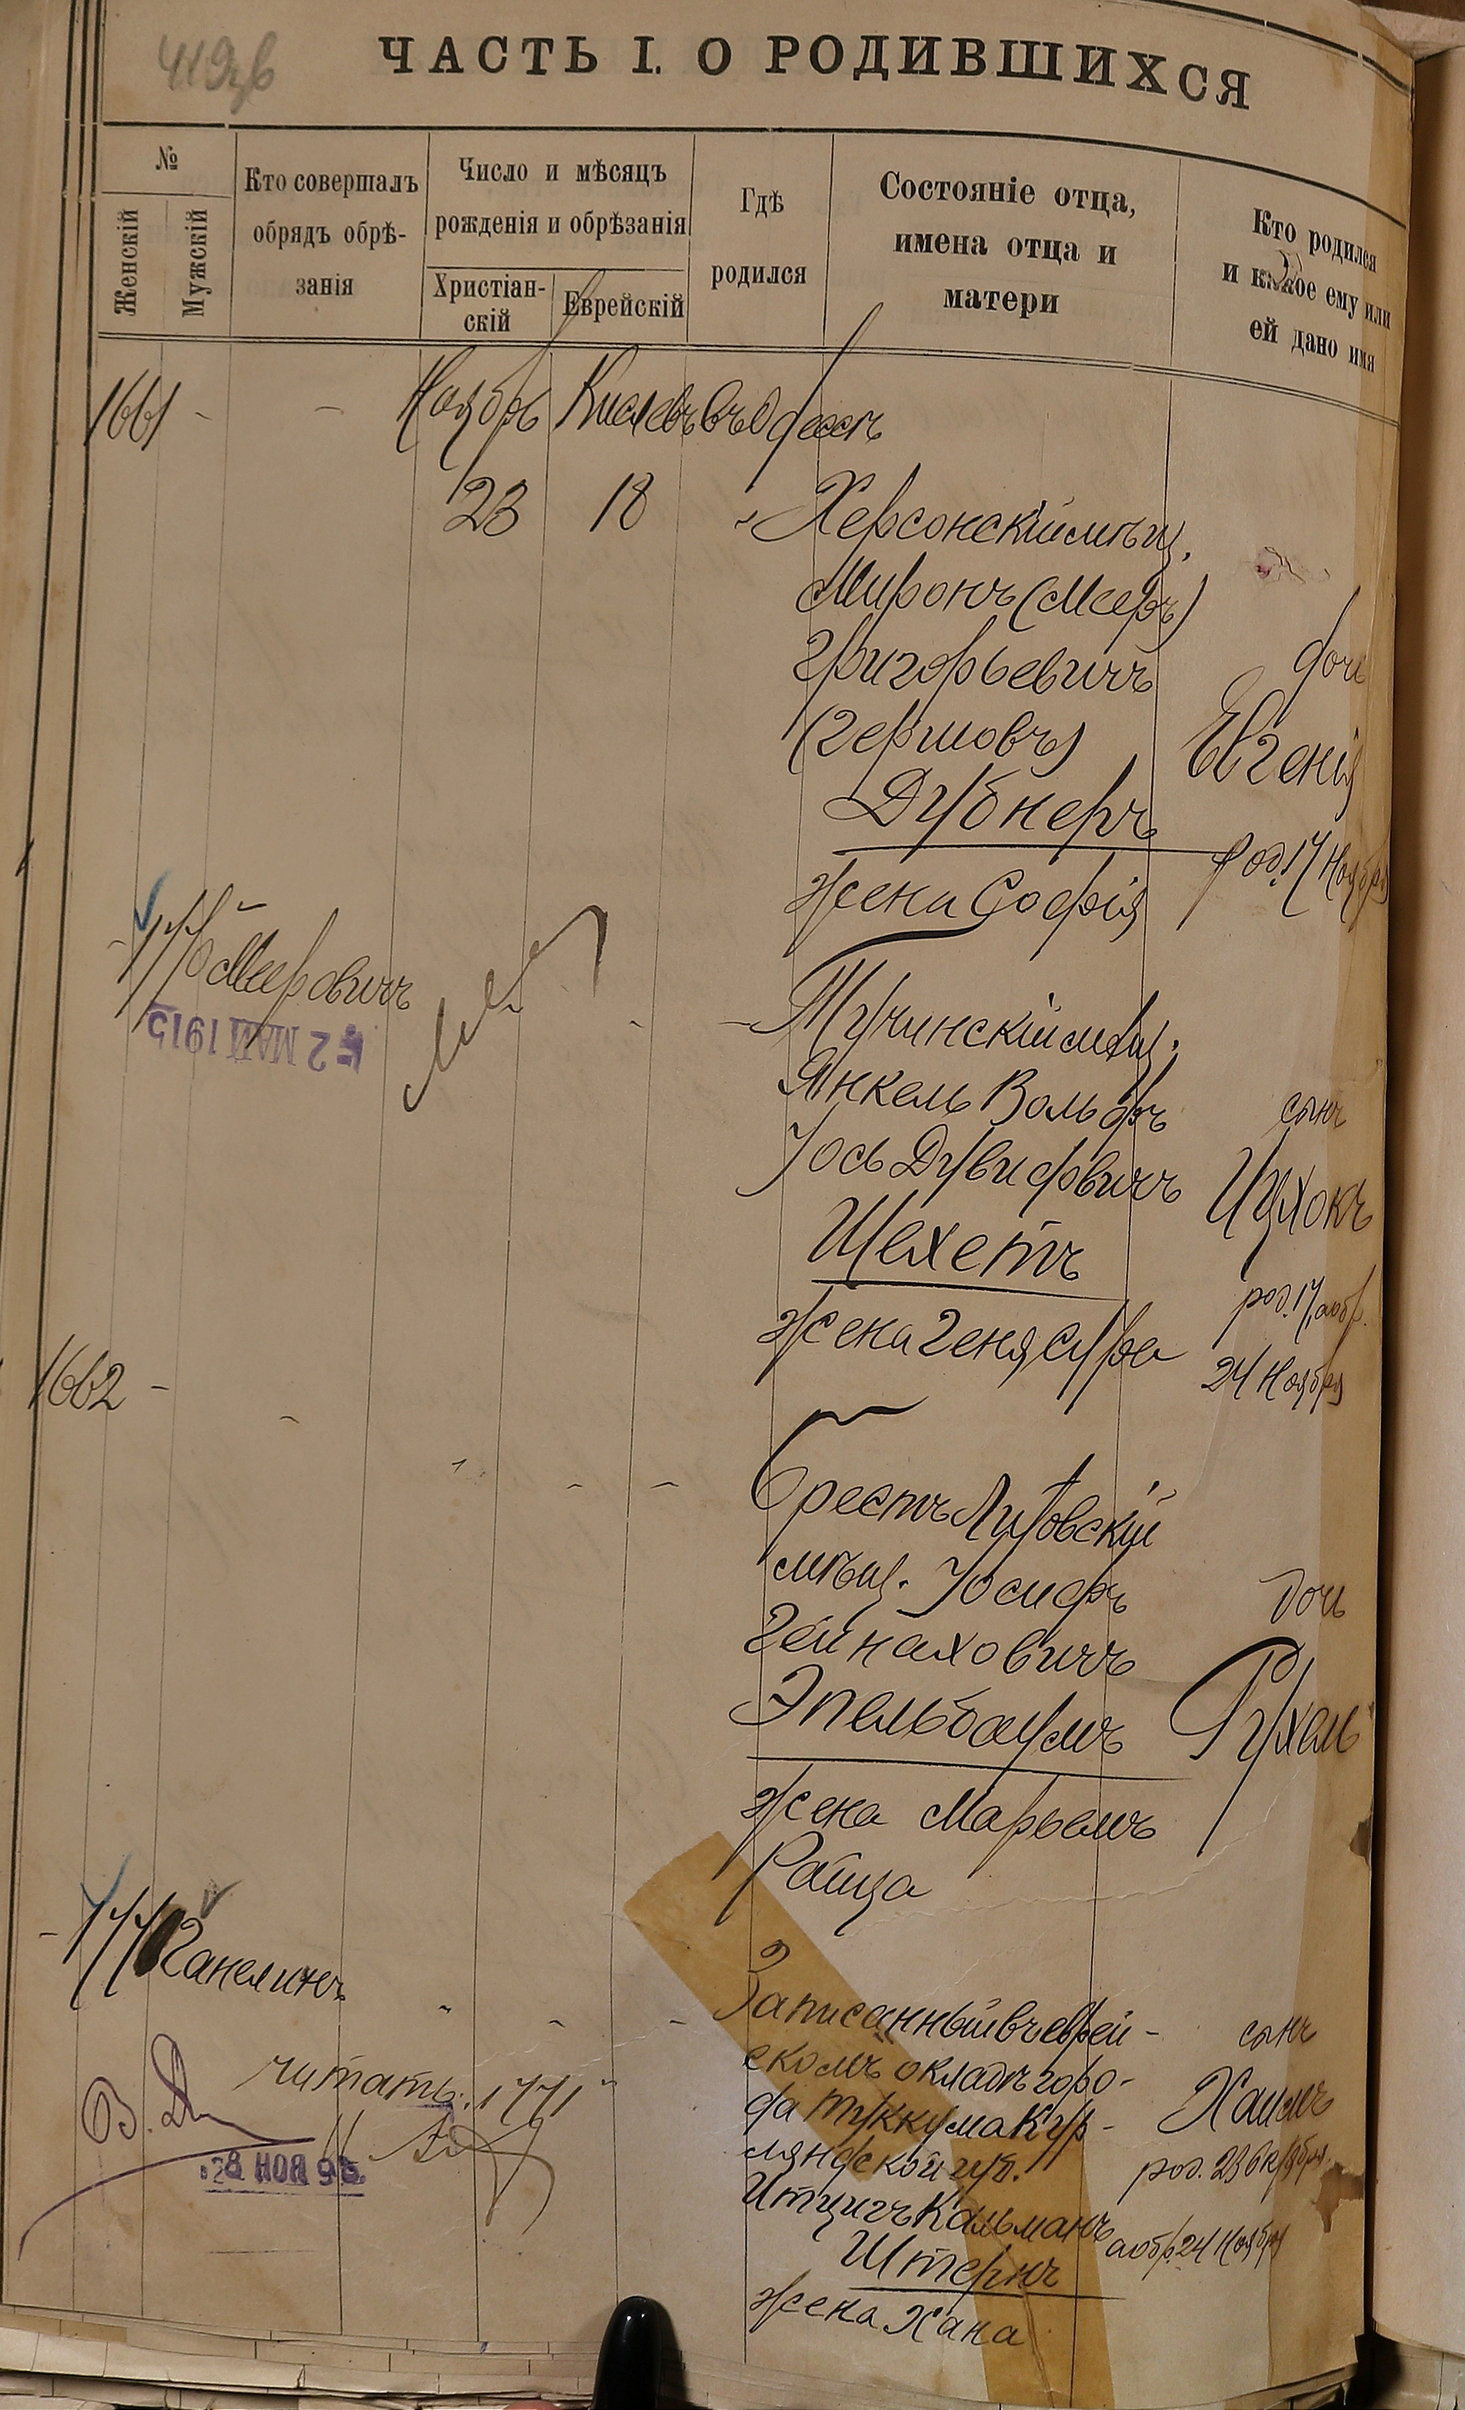 ЧАСТЬ I. О РОДИВШИХСЯ
№
Женскій
Мужскій
Кто совершалъ
обрядъ обрѣ-
занія
Число и мѣсяцъ
рожденія и обрѣзанія
Христіан-
скій
Еврейскій
Гдѣ
родился
Состояніе отца,
имена отца и
матери
Кто родился
и какое ему или
ей дано имя
1661 - - Ноябрь Кислевъ въ Одессѣ
23 18
Херсонскій мѣщ.
Миронъ (Мееръ)
Григорьевичъ
(Гершовъ)
Дубнеръ
жена Софія
дочь
Евгенія
род. 17 Ноября
Мееровичъ
2 МАЯ 1915
Тучинскій мѣщ.
Янкель Вольфъ
Іось Дувидовичъ
Шехетъ
жена Геня Сура
сынъ
Ицхокъ
род. 17, а обр.
24 Ноября
1662 -
Брестъ Литовскій
мѣщ. Іосифъ
Гейнаховичъ
Эпельбаумъ
жена Марьемъ
Райца
дочь
Рухель
Ганелинъ
Записанный въ еврей-
скомъ окладѣ горо-
да Туккума Кур-
ляндской губ.
Итцигъ Кальманъ
Штернъ
жена Хана
сынъ
Хаимъ
а обр. 24 Ноября
читать: 1771
28 НОЯ 95